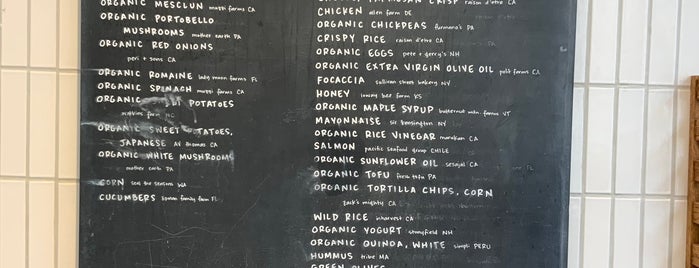 ORGANIC MESCLUN matti farms CA
ORGANIC PORTOBELLO
MUSHROOMS mother earth PA
ORGANIC RED ONIONS
peri + sons CA
ORGANIC ROMAINE lady moon farms FL
ORGANIC SPINACH matti farms CA
ORGANIC POTATOES
farms NC
ORGANIC SWEET POTATOES,
JAPANESE AV thomas CA
ORGANIC WHITE MUSHROOMS
mother earth PA
CORN seal the seasons WA
CUCUMBERS family farm FL
CRISP raison d'etre CA
CHICKEN allen farm DE
ORGANIC CHICKPEAS furmano's PA
CRISPY RICE raison d'etre CA
ORGANIC EGGS pete + gerry's NH
ORGANIC EXTRA VIRGIN OLIVE OIL farms CA
FOCACCIA sullivan street bakery NY
HONEY bee farm KS
ORGANIC MAPLE SYRUP butternut mtn. farms VT
MAYONNAISE sir kensington NY
ORGANIC RICE VINEGAR marukan CA
SALMON pacific seafood group CHILE
ORGANIC SUNFLOWER OIL CA
ORGANIC TOFU fresh tofu PA
ORGANIC TORTILLA CHIPS, CORN
zack's mighty CA
WILD RICE inharvest CA
ORGANIC YOGURT stonyfield NH
ORGANIC QUINOA, WHITE simpli PERU
HUMMUS tribe MA
GREEN OLIVES